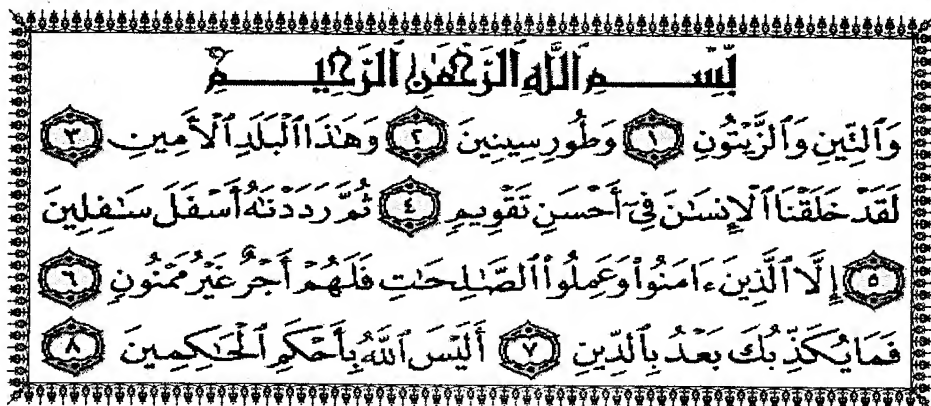 بِسْمِ ٱللَّهِ ٱلرَّحْمَٰنِ ٱلرَّحِيمِ
وَٱلتِّينِ وَٱلزَّيْتُونِ ١ وَطُورِ سِينِينَ ٢ وَهَٰذَا ٱلْبَلَدِ ٱلْأَمِينِ ٣
لَقَدْ خَلَقْنَا ٱلْإِنسَٰنَ فِىٓ أَحْسَنِ تَقْوِيمٍ ٤ ثُمَّ رَدَدْنَٰهُ أَسْفَلَ سَٰفِلِينَ
٥ إِلَّا ٱلَّذِينَ ءَامَنُوا۟ وَعَمِلُوا۟ ٱلصَّٰلِحَٰتِ فَلَهُمْ أَجْرٌ غَيْرُ مَمْنُونٍ ٦
فَمَا يُكَذِّبُكَ بَعْدُ بِٱلدِّينِ ٧ أَلَيْسَ ٱللَّهُ بِأَحْكَمِ ٱلْحَٰكِمِينَ ٨